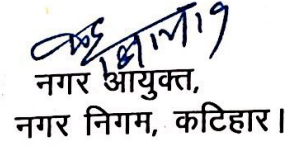 नगर आयुक्त,
नगर निगम, कटिहार।